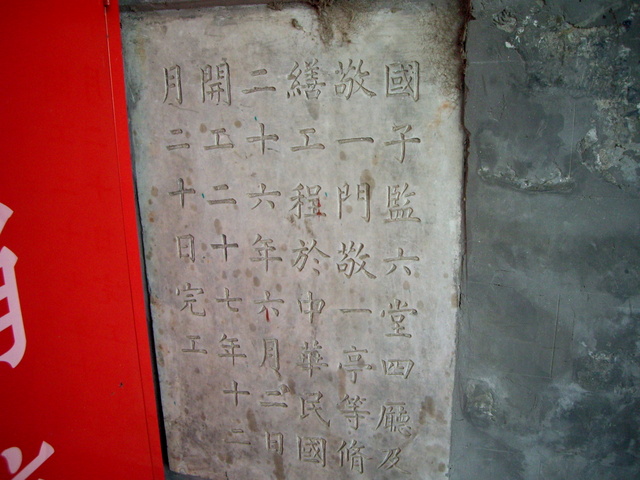 國子監六堂四廳及
敬一門敬一亭等脩
繕工程於中華民國
二十六年六月二日
開工二十七年十二
月二十日完工